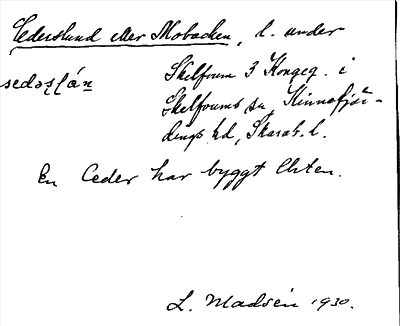 Cederslund eller Mobacken, l. under
sedəsļán Skelfvum 3 Kongeg. i
Skelfvums sn, Kinnefjär-
dings hd, Skarab. l.
En Ceder har byggt Ehten.
L. Madsén 1930.